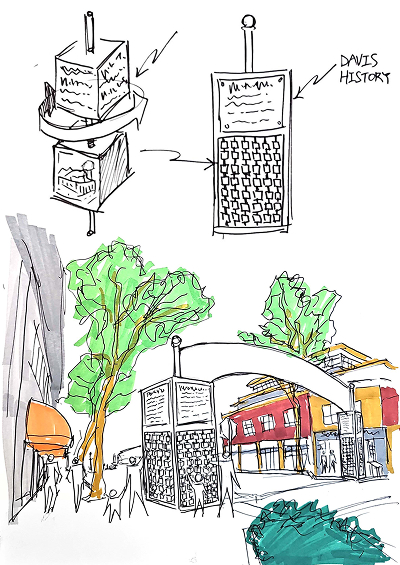 DAVIS
HISTORY